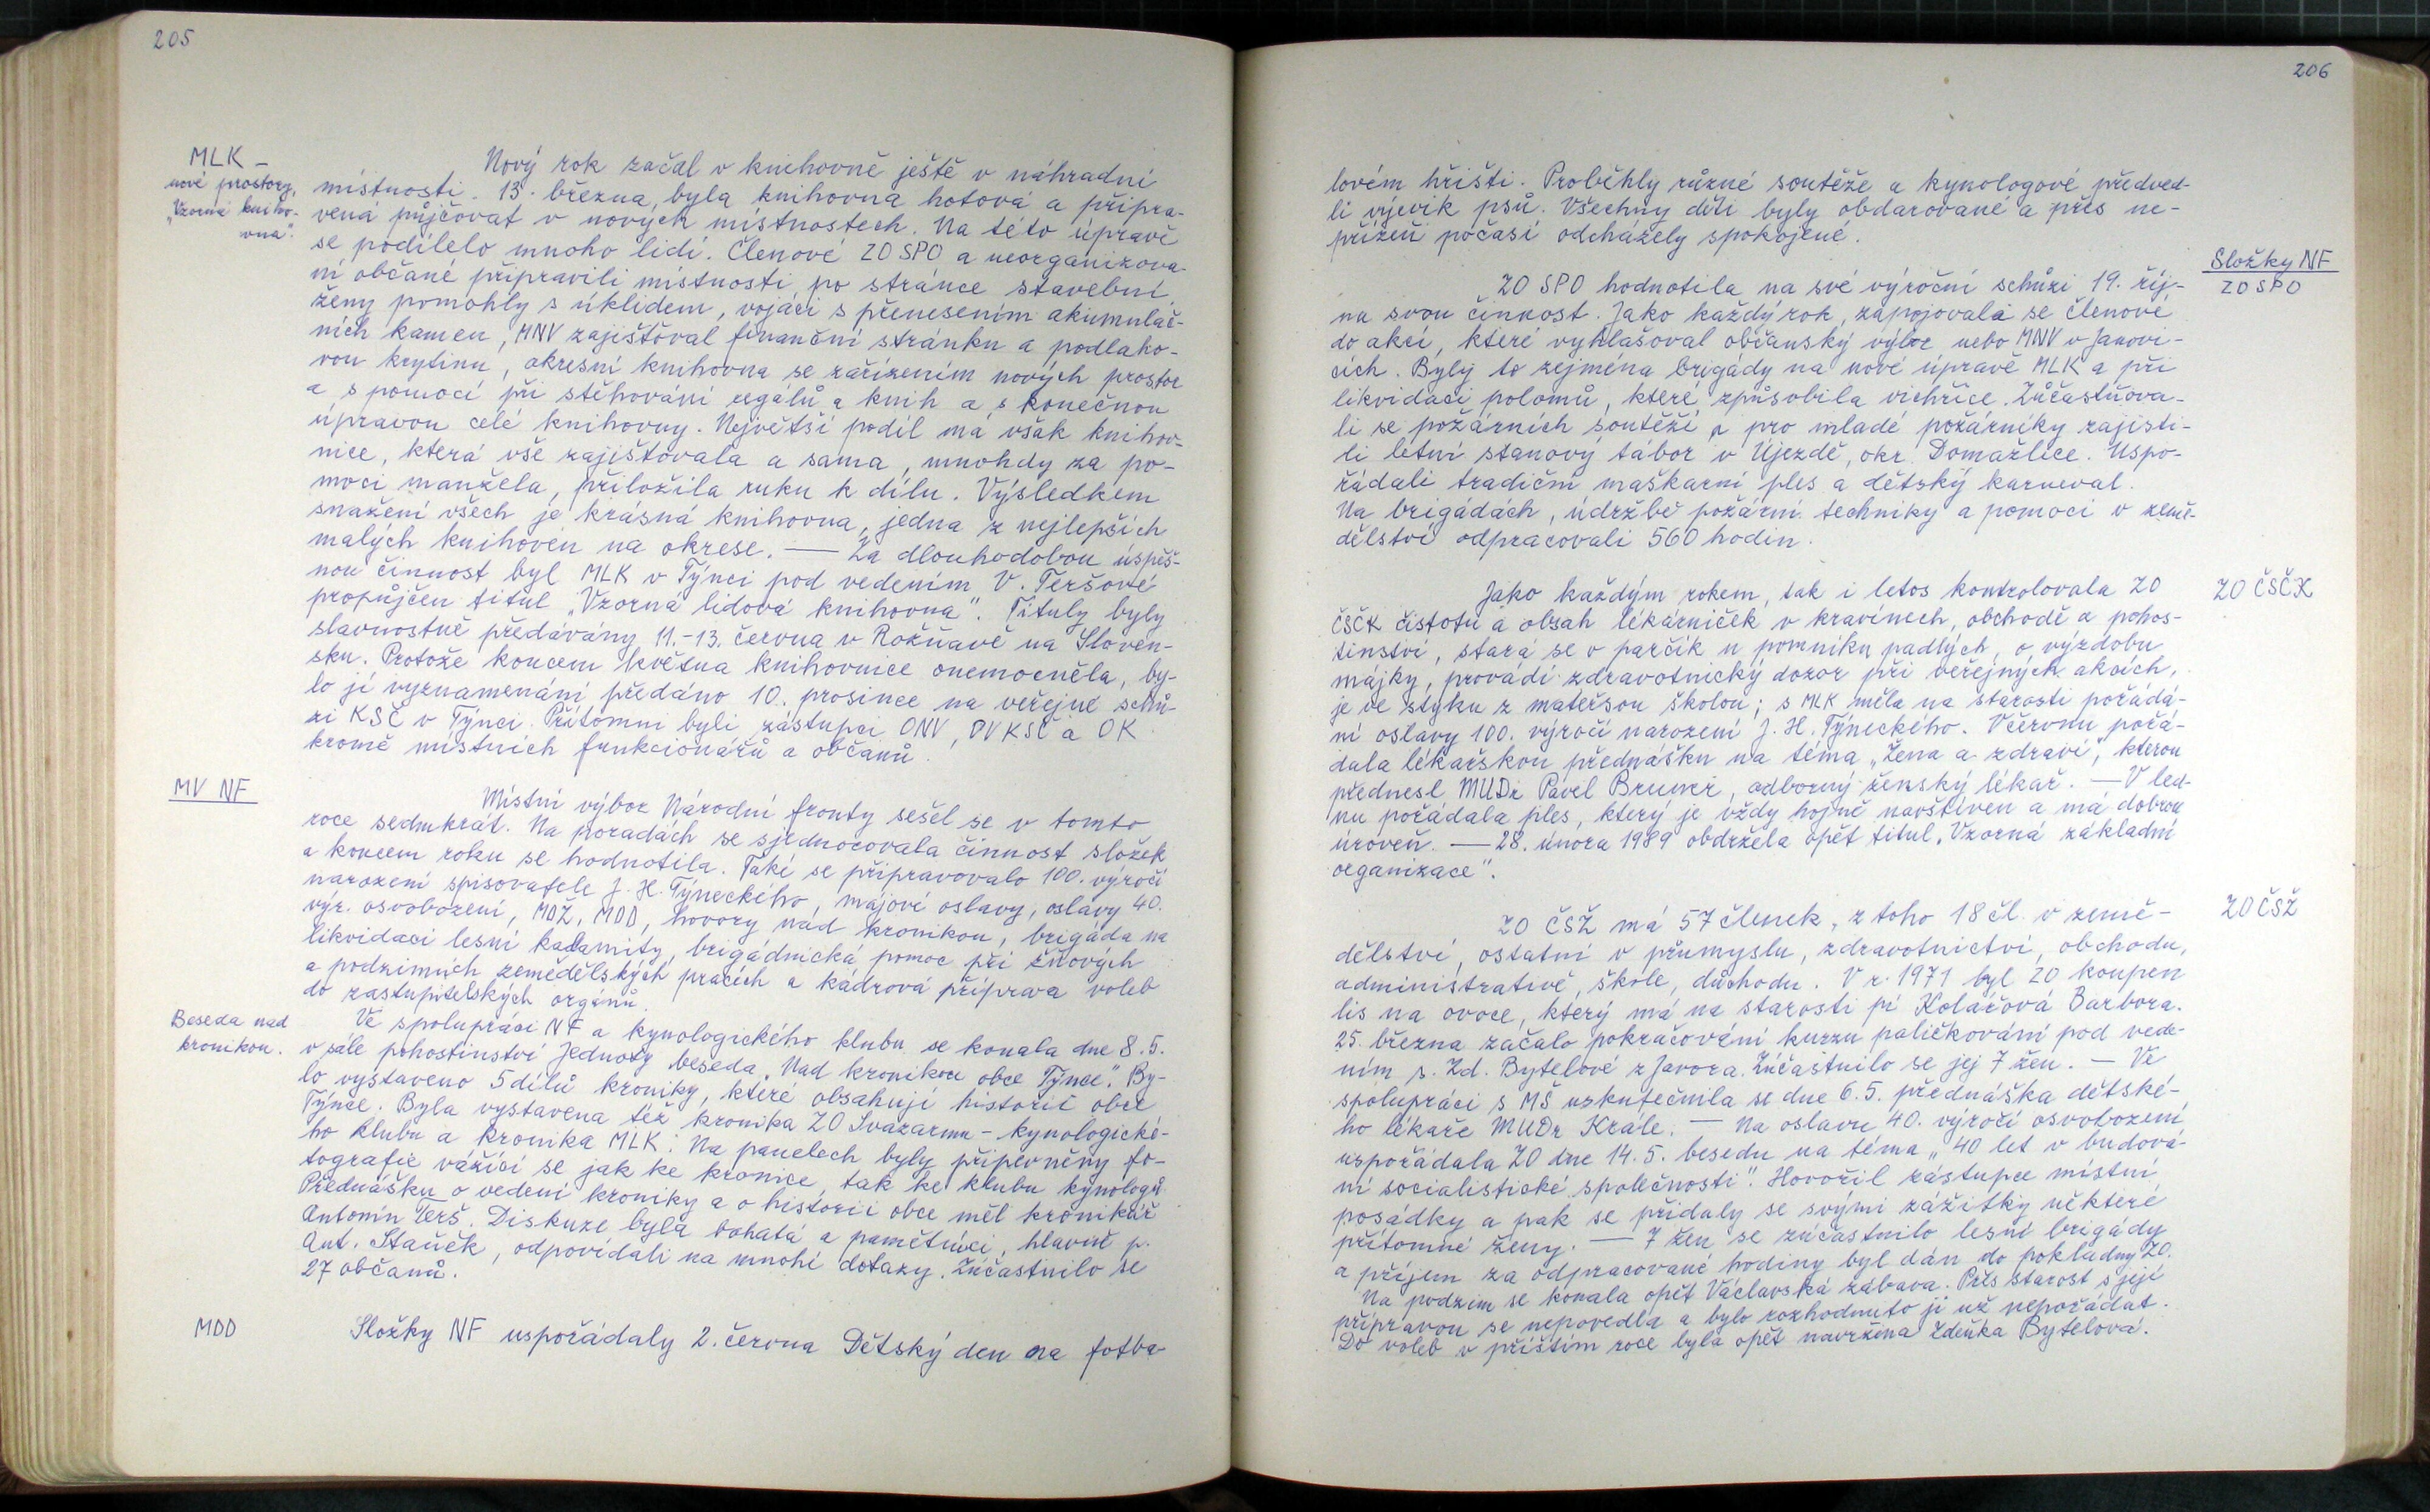 205
MLK –
nové prostory,
„Vzorná kniho-
vna".
Nový rok začal v knihovně ještě v náhradní
místnosti. 13. března, byla knihovna hotová a připra-
vená půjčovat v nových místnostech. Na této úpravě
se podílelo mnoho lidí. Členové ZO SPO a neorganizova-
ní občané připravili místnosti po stránce stavební,
ženy pomohly s úklidem, vojáci s přenesením akumulač-
ních kamen, MNV zajišťoval finanční stránku a podlaho-
vou krytinu, okresní knihovna se zařízením nových prostor
a s pomocí při stěhování regálů a knih a s konečnou
úpravou celé knihovny. Největší podíl má však knihov-
nice, která vše zajišťovala a sama, mnohdy za po-
moci manžela, přiložila ruku k dílu. Výsledkem
snažení všech je krásná knihovna, jedna z nejlepších
malých knihoven na okrese. — Za dlouhodobou úspěš-
nou činnost byl MLK v Týnci pod vedením V. Teršové
propůjčen titul „Vzorná lidová knihovna". Tituly byly
slavnostně předávány 11.-13. června v Rožňavě na Sloven-
sku. Protože koncem května knihovnice onemocněla, by-
lo jí vyznamenání předáno 10. prosince na veřejné schů-
zi KSČ v Týnci. Přítomni byli zástupci ONV, OV KSČ a OK
kromě místních funkcionářů a občanů.
MV NF
Místní výbor Národní fronty sešel se v tomto
roce sedmkrát. Na poradách se sjednocovala činnost složek
a koncem roku se hodnotila. Také se připravovalo 100. výročí
narození spisovatele J. H. Týneckého, májové oslavy, oslavy 40.
výr. osvobození, MDŽ, MDD, hovory nad kronikou, brigáda na
likvidaci lesní kalamity, brigádnická pomoc při žňových
a podzimních zemědělských pracích a kádrová příprava voleb
do zastupitelských orgánů.
Beseda nad
kronikou.
Ve spolupráci NF a kynologického klubu se konala dne 8.5.
v sále pohostinství Jednoty beseda „Nad kronikou obce Týnce". By-
lo vystaveno 5 dílů kroniky, které obsahují historii obce
Týnce. Byla vystavena též kronika ZO Svazarmu - kynologické-
ho klubu a kronika MLK. Na panelech byly připevněny fo-
tografie vážící se jak ke kronice, tak ke klubu kynologů.
Přednášku o vedení kroniky a o historii obce měl kronikář
Antonín Terš. Diskuze byla bohatá a pamětníci, hlavně p.
Ant. Staněk, odpovídali na mnohé dotazy. Zúčastnilo se
27 občanů.
MDD
Složky NF uspořádaly 2. června Dětský den na fotba-
206
lovém hřišti. Proběhly různé soutěže a kynologové předved-
li výcvik psů. Všechny děti byly obdarované a přes ne-
přízeň počasí odcházely spokojené.
Složky NF
ZO SPO
ZO SPO hodnotila na své výroční schůzi 19. říj-
na svou činnost. Jako každý rok, zapojovala se členové
do akcí, které vyhlašoval občanský výbor nebo MNV v Janovi-
cích. Byly to zejména brigády na nové úpravě MLK a při
likvidaci polomů, které způsobila vichřice. Zúčastňova-
li se požárních soutěží a pro mladé požárníky zajisti-
li letní stanový tábor v Újezdě, okr. Domažlice. Uspo-
řádali tradiční maškarní ples a dětský karneval.
Na brigádách, údržbě požární techniky a pomoci v země-
dělství odpracovali 560 hodin.
ZO ČSČK
Jako každým rokem, tak i letos kontrolovala ZO
ČSČK čistotu a obsah lékárniček v kravínech, obchodě a pohos-
tinství, stará se o parčík u pomníku padlých, o výzdobu
májky, provádí zdravotnický dozor při veřejných akcích,
je ve styku z mateřsou školou; s MLK měla na starosti pořádá-
ní oslavy 100. výročí narození J. H. Týneckého. V červnu pořá-
dala lékařskou přednášku na téma „Žena a zdraví", kterou
přednesl MUDr Pavel Bruner, odborný ženský lékař. — V led-
nu pořádala ples, který je vždy hojně navštíven a má dobrou
úroveň. — 28. února 1989 obdržela opět titul „Vzorná základní
organizace".
ZO ČSŽ
ZO ČSŽ má 57 členek, z toho 18 čl. v země-
dělství, ostatní v průmyslu, zdravotnictví, obchodu,
administrativě, škole, důchodu. V r. 1971 byl ZO koupen
lis na ovoce, který má na starosti pí Kolářová Barbora.
25. března začalo pokračování kurzu paličkování pod vede-
ním s. Zd. Bytelové z Javora. Zúčastnilo se jej 7 žen. — Ve
spolupráci s MŠ uskutečnila se dne 6.5. přednáška dětské-
ho lékaře MUDr Krále. — Na oslavu 40. výročí osvobození
uspořádala ZO dne 14.5. besedu na téma „40 let v budová-
ní socialistické společnosti". Hovořil zástupce místní
posádky a pak se přidaly se svými zážitky některé
přítomné ženy. — 7 žen se zúčastnilo lesní brigády
a příjem za odpracované hodiny byl dán do pokladny ZO.
Na podzim se konala opět Václavská zábava. Přes starost s její
přípravou se nepovedla a bylo rozhodnuto ji už nepořádat.
Do voleb v příštím roce byla opět navržena Zdeňka Bytelová.